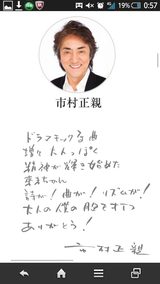 19%
0:57
市村正親
ドラマチックな曲
増々大人っぽく
精神が輝き始めた
来未ちゃん
詩が!曲が!リズムが!
大人の僕の
ありがとう!
市村正親